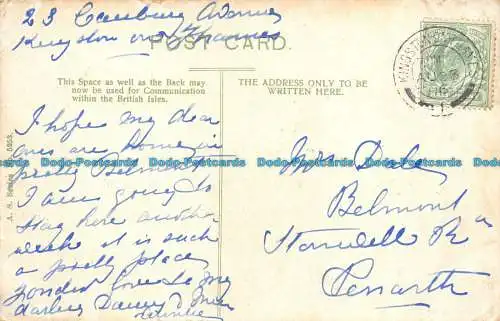 23 Canbury Avenue
Kingston on Thames
POST CARD.
This Space as well as the Back may
now be used for Communication
within the British Isles.
THE ADDRESS ONLY TO BE
WRITTEN HERE.
KINGSTON ON THAMES
I hope my dear
ones are home in
pretty Belmont
I am going to
stay here another
week it is such
a pretty place
fondest love to my
darling
Mrs Dale
Belmont
Stanwell Rd
Penarth
A. S. Series 5053.
Dodo-Postcards Dodo-Postcards Dodo-Postcards Dodo-Postcards Dodo-Postcards